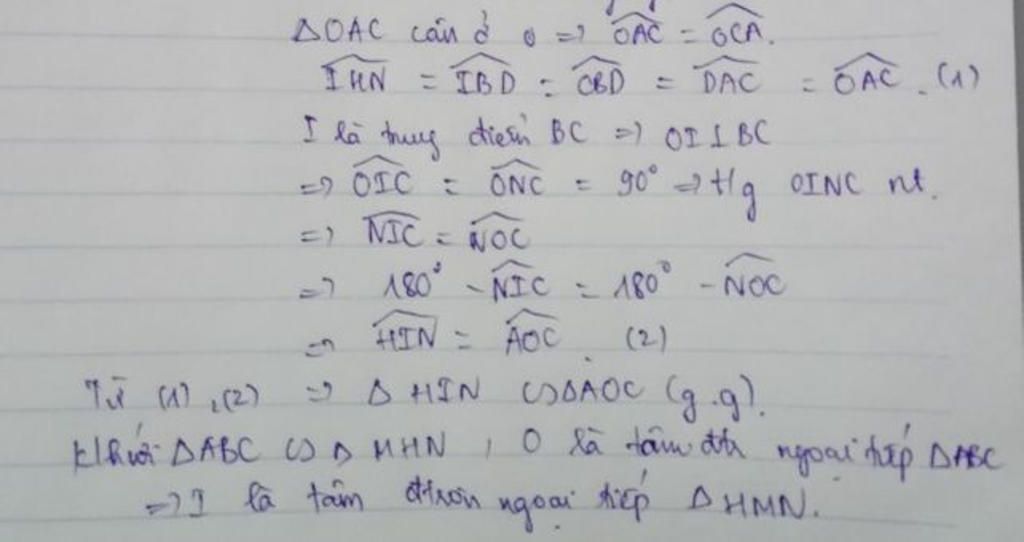 ΔOAC cân ở O => \widehat{OAC} = \widehat{OCA}.
\widehat{IHN} = \widehat{IBD} = \widehat{OBD} = \widehat{DAC} = \widehat{OAC}. (1)
I là trung điểm BC => OI ⊥ BC
=> \widehat{OIC} = \widehat{ONC} = 90° => t/g OINC nt.
=> \widehat{NIC} = \widehat{NOC}
=> 180° - \widehat{NIC} = 180° - \widehat{NOC}
=> \widehat{HIN} = \widehat{AOC}. (2)
Từ (1), (2) => Δ HIN ∽ ΔAOC (g.g).
ΔABC ∽ Δ MHN, O là tâm đtr ngoại tiếp ΔABC
=> I là tâm đtròn ngoại tiếp Δ HMN.